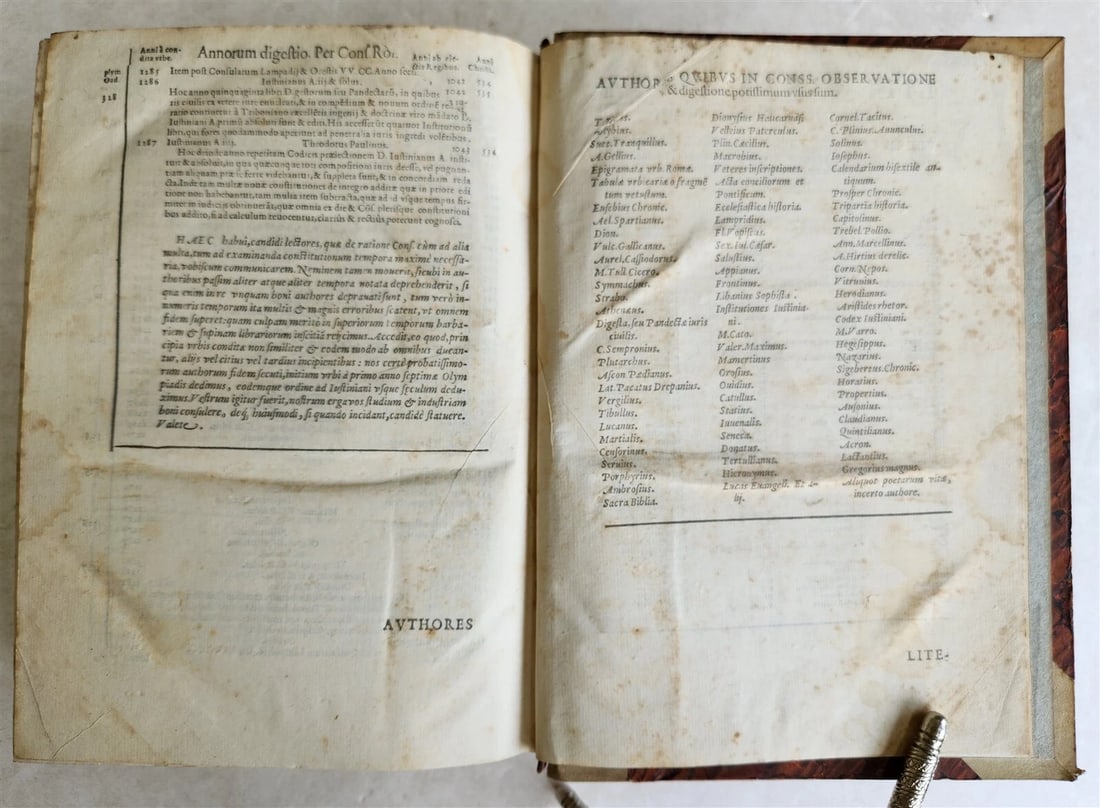 Anni à con-
dita vrbe.
Annorum digestio. Per Conſ. Ro.
Anni ab eie-
ctis Regibus.
Anni
Chriſti.
Olym.
Ord.
1285 Item post Conſulatum Lampadij & Oreſtis VV. CC. Anno ſecū. 1042 534
1286 Iuſtinianus A. iij & ſolus. 1042 535
328
Hoc anno quinquaginta libri Digeſtorum ſeu Pandectarū, in quibus
ris ciuilis ex vetere iure enucleati, & in compēdium & nouum ordinē
ratio continetur à Triboniano excellētis ingenij & doctrinæ viro mādato D.
Iuſtiniani A. primū abſoluti ſunt & editi. His acceſſerūt quatuor Inſtitutionū
libri, qui fores quodammodo aperiunt ad penetralia iuris ingredi volētibus.
1287 Iuſtinianus A. iiij. Theodotus Paulinus. 1043 536
Hoc demū anno repetitam Codicis prælectionem D. Iuſtinianus A. inſti-
tuit & abſoluit, in qua quæcunque toti compoſitioni iuris deeſſe, vel pugnan-
tiam aliquam præ ſe ferre videbantur, & ſuppleta ſunt, & in concordiam reda
cta. Inde tam multæ nouæ conſtitutiones de integro additæ quæ in priore edi
tione non habebantur, tam multa item ſubtracta, quæ ad id vſque tempus fir-
miter in iudicijs obtinuerāt, quæ omnia ex die & Cōſ. pleriſque conſtitutioni
bus addito, ſi ad calculum reuocentur, clariùs & rectiùs poterunt cognoſci.
HAEC habui, candidi lectores, quæ de ratione Conſ. cùm ad alia
multa, tum ad examinanda conſtitutionum tempora maximè neceſſa-
ria, vobiſcum communicarem. Neminem tamen mouerit, ſicubi in au-
thoribus paſſim aliter atque aliter tempora notata deprehenderit, ſi
qua enim in re vnquam boni authores deprauati ſunt, tum verò in
numeris temporum ita multis & magnis erroribus ſcatent, vt omnem
fidem ſuperet: quam culpam meritò in ſuperiorum temporum barba-
riem & ſupinam librariorum inſcitiā reijcimus. Accedit, eo quod, prin
cipia vrbis conditæ non ſimiliter & eodem modo ab omnibus ducan-
tur, alijs vel citius vel tardius incipientibus: nos certè probatiſſimo-
rum authorum fidem ſecuti, initium vrbi à primo anno ſeptimæ Olym
piadis dedimus, eodemque ordine ad Iuſtiniani vſque ſeculum dedu-
ximus. Veſtrum igitur fuerit, noſtrum erga vos ſtudium & induſtriam
boni conſulere, deq́; huiuſmodi, ſi quando incidant, candidè ſtatuere.
Valete.
AVTHORES
AVTHOR QVIBVS IN CONSS. OBSERVATIONE
& digeſtione, potiſſimum vſus ſum.
Suet. Tranquillus.
A. Gellius.
Epigramata vrb. Romæ.
Tabulæ vrbicariæ ò fragmē
tum vetuſtum.
Euſebius Chronic.
Ael. Spartianus.
Dion.
Vulc. Gallicanus.
Aurel. Caſſiodorus.
M. Tull. Cicero.
Symmachus.
Strabo.
Athenæus.
Digeſta, ſeu Pandectæ iuris
ciuilis.
C. Sempronius.
Plutarchus.
Aſcon. Pædianus.
Lat. Pacatus Drepanius.
Vergilius.
Tibullus.
Lucanus.
Martialis.
Cenſorinus.
Seruius.
Porphyrius.
Ambroſius.
Sacra Biblia.
Dionyſius Halicarnaſſ.
Velleius Paterculus.
Plin. Cæcilius.
Macrobius.
Veteres inſcriptiones.
Acta conciliorum et
Pontificum.
Eccleſiaſtica hiſtoria.
Lampridius.
Fl. Vopiſcus.
Sex. Iul. Cæſar.
Saluſtius.
Appianus.
Frontinus.
Libanius Sophiſta.
Inſtitutiones Iuſtinia-
ni.
M. Cato.
Valer. Maximus.
Mamertinus
Oroſius.
Ouidius.
Catullus.
Statius.
Iuuenalis.
Seneca.
Donatus.
Tertullianus.
Hieronymus.
Lucas Euangeli. Et a-
lij.
Cornel. Tacitus.
C. Plinius Auunculus.
Solinus.
Ioſephus.
Calendarium biſextile an-
tiquum.
Proſper Chronic.
Tripartia hiſtoria.
Capitolinus.
Trebel. Pollio.
Am. Marcellinus.
A. Hirtius derelic.
Corn. Nepos.
Vitruuius.
Herodianus.
Ariſtides rhetor.
Codex Iuſtiniani.
M. Varro.
Hegeſippus.
Nazarius.
Sigebertus Chronic.
Horatius.
Propertius.
Auſonius.
Claudianus.
Quintilianus.
Acron.
Lactantius.
Gregorius magnus.
Aliquot poetarum vitæ,
incerto authore.
LITE-